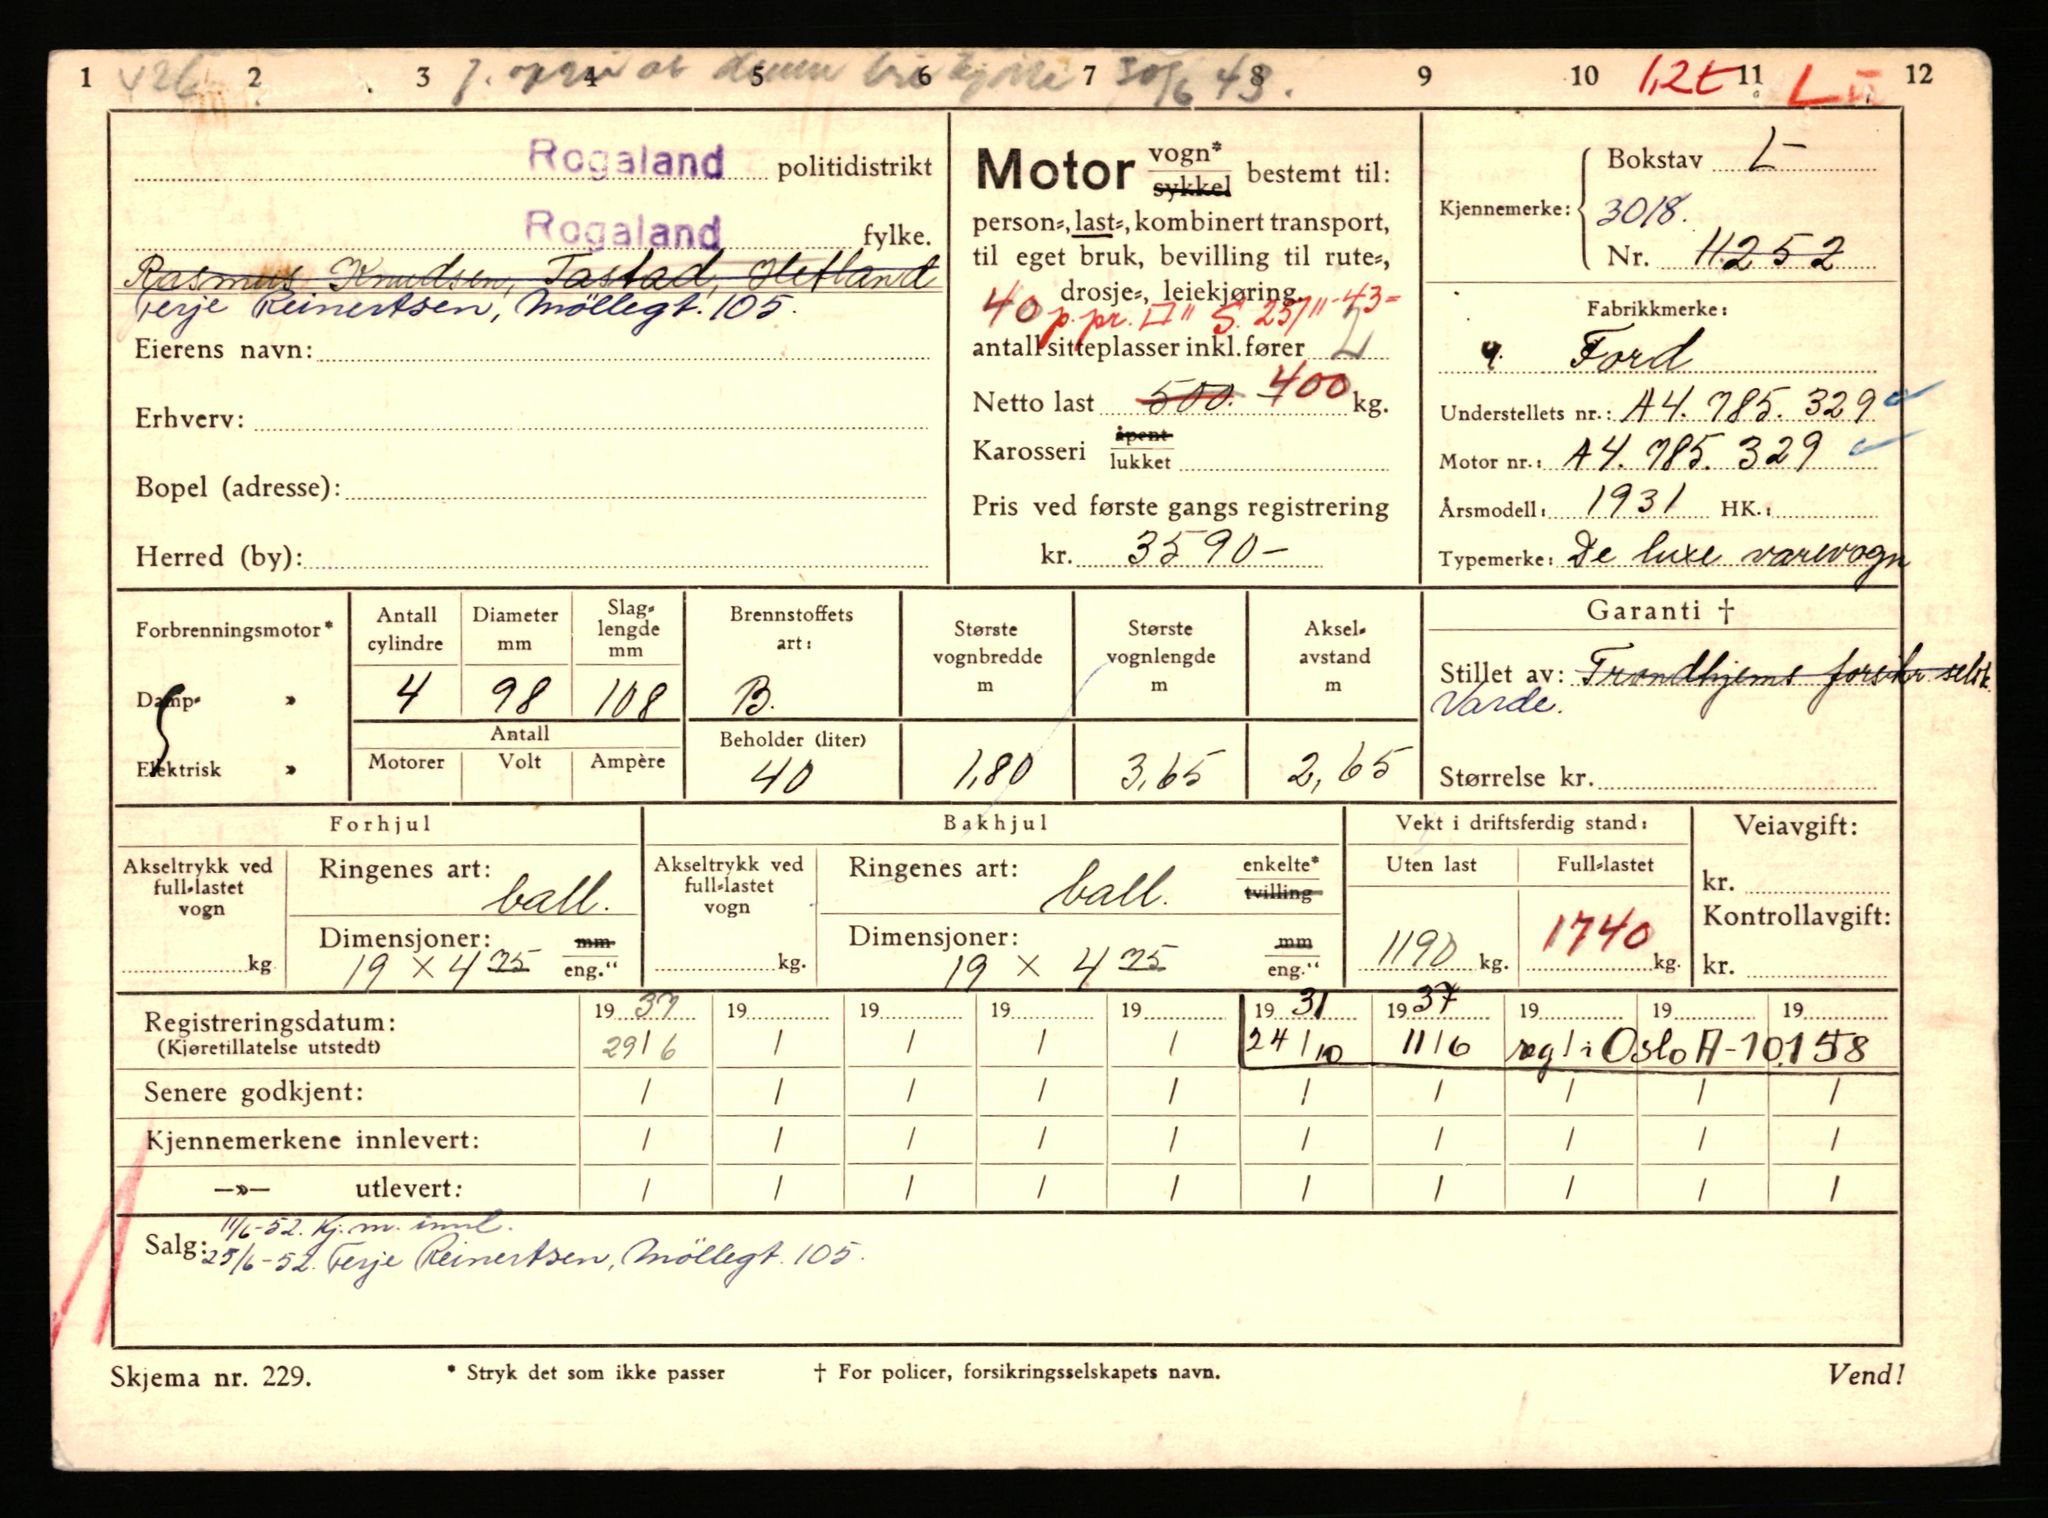 1 2 3 4 5 6 7 8 9 10 11 12
30/6 43.
1,2t L II
Rogaland politidistrikt
Rogaland fylke.
Rasmus Knudsen, Tastad, Hetland
Terje Reinertsen, Möllegt. 105.
Eierens navn:
Erhverv:
Bopel (adresse):
Herred (by):
Motor vogn* sykkel bestemt til:
person-, last-, kombinert transport,
til eget bruk, bevilling til rute-,
drosje-, leiekjøring.
40 p. pr. II" S. 25/11-43=
antall sitteplasser inkl. fører 2
Netto last 500. 400 kg.
Karosseri åpent lukket
Pris ved første gangs registrering
kr. 3590-
Kjennemerke: Bokstav L
3018.
Nr. 11252
Fabrikkmerke:
Ford
Understellets nr.: A4.785.329
Motor nr.: A4.785.329
Årsmodell: 1931 HK.:
Typemerke: De luxe varevogn
Forbrenningsmotor*
Damp- »
Elektrisk »
Antall cylindre
4
Diameter mm
98
Slaglengde mm
108
Antall
Motorer Volt Ampère
Brennstoffets art:
B.
Beholder (liter)
40
Største vognbredde m
1,80
Største vognlengde m
3,65
Akselavstand m
2,65
Garanti †
Stillet av: Trondhjems forsikr. selsk.
Varde.
Størrelse kr.
Forhjul
Akseltrykk ved full-lastet vogn
kg.
Ringenes art:
ball.
Dimensjoner: mm
19 x 4 75 eng."
Bakhjul
Akseltrykk ved full-lastet vogn
kg.
Ringenes art: enkelte*
ball. tvilling
Dimensjoner: mm
19 x 4 75 eng."
Vekt i driftsferdig stand:
Uten last Full-lastet
1190 kg. 1740 kg.
Veiavgift:
kr.
Kontrollavgift:
kr.
Registreringsdatum: 1937 19 19 19 19 1931 1937 19 19 19
(Kjøretillatelse utstedt) 29/6 / / / / 24/10 11/6 reg. i Oslo A-10.158
Senere godkjent: / / / / / / / / / /
Kjennemerkene innlevert: / / / / / / / / / /
—»— utlevert: / / / / / / / / / /
11/6-52. Kj.m. innl.
Salg: 25/6-52. Terje Reinertsen, Möllegt. 105.
Skjema nr. 229. * Stryk det som ikke passer † For policer, forsikringsselskapets navn. Vend!